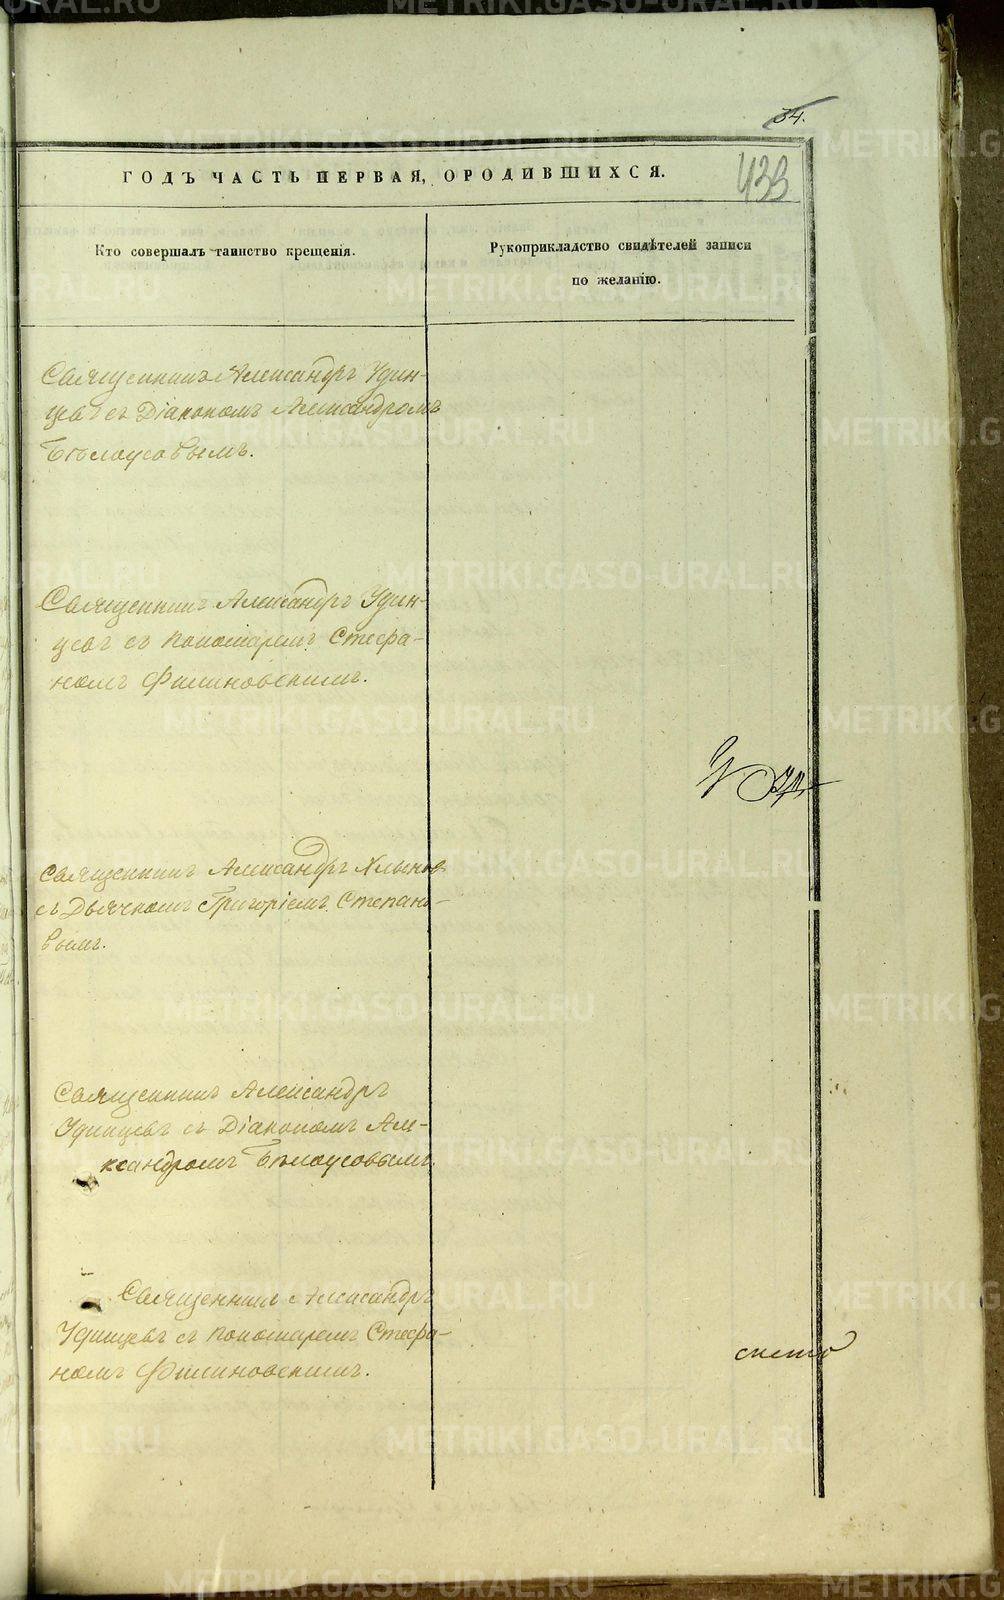 34.
433
ГОДЪ ЧАСТЬ ПЕРВАЯ, О РОДИВШИХСЯ.
Кто совершалъ таинство крещенія.
Рукоприкладство свидѣтелей записи
по желанію.
Священникъ Александръ Удин-
цевъ съ Діакономъ Александромъ
Бѣлоусовымъ.
Священникъ Александръ Удин-
цевъ съ пономаремъ Стефа-
номъ Филиновскимъ.
Священникъ Александръ Хлынов
съ Дьячкомъ Григоріемъ Степано-
вымъ.
Священникъ Александръ
Удинцевъ съ Діакономъ Але-
ксандромъ Бѣлоусовымъ.
Священникъ Александръ
Удинцевъ съ пономаремъ Стефа-
номъ Филиновскимъ.
METRIKI.GASO-URAL.RU